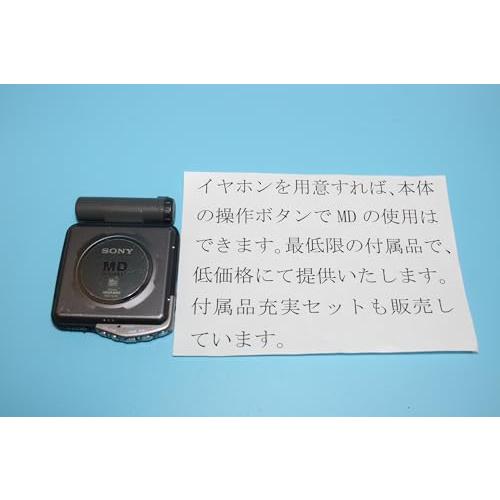 SONY
MD
イヤホンを用意すれば、本体
の操作ボタンで MD の使用は
できます。最低限の付属品で、
低価格にて提供いたします。
付属品充実セットも販売し
ています。